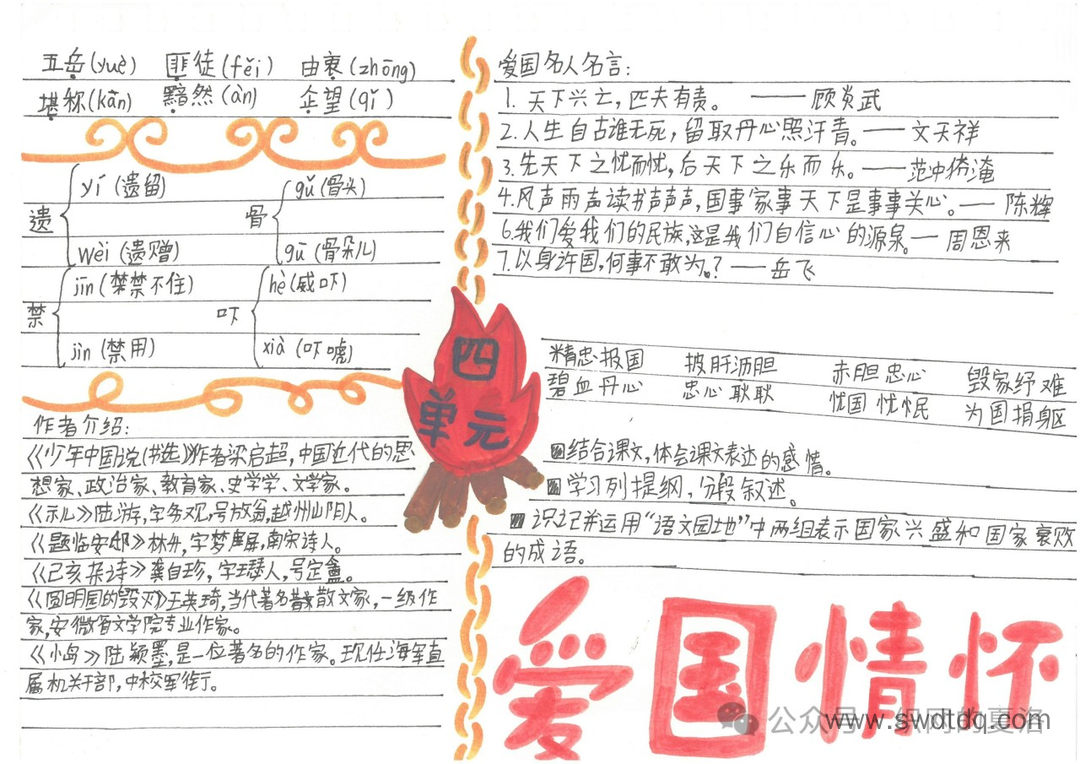 五岳(yuè) 匪徒(fěi) 由衷(zhōng)
堪称(kān) 黯然(àn) 企望(qǐ)
遗
yí(遗留)
wèi(遗赠)
骨
gǔ(骨头)
gū(骨朵儿)
禁
jīn(禁禁不住)
jìn(禁用)
吓
hè(威吓)
xià(吓唬)
作者介绍:
《少年中国说(节选)》作者梁启超,中国近代的思
想家、政治家、教育家、史学学、文学家。
《示儿》陆游,字务观,号放翁,越州山阴人。
《题临安邸》林升,字梦屏,南宋诗人。
《己亥杂诗》龚自珍,字璱人,号定盦。
《圆明园的毁灭》王英琦,当代著名散文家,一级作
家,安徽省文学院专业作家。
《小岛》陆颖墨,是一位著名的作家。现任海军直
属机关干部,中校军衔。
四
单元
爱国名人名言:
1. 天下兴亡,匹夫有责。——顾炎武
2.人生自古谁无死,留取丹心照汗青。——文天祥
3.先天下之忧而忧,后天下之乐而乐。——范中淹
4.风声雨声读书声声声,国事家事天下是事事关心。——陈辉
6.我们爱我们的民族,这是我们自信心的源泉。——周恩来
7.以身许国,何事不敢为。?——岳飞
精忠报国 披肝沥胆 赤胆忠心 毁家纾难
碧血丹心 忠心耿耿 忧国忧民 为国捐躯
结合课文,体会课文表达的感情。
学习列提纲,分段叙述。
识记并运用“语文园地”中两组表示国家兴盛和国家衰败
的成语。
爱国情怀
公众号
www.swdtdq.com